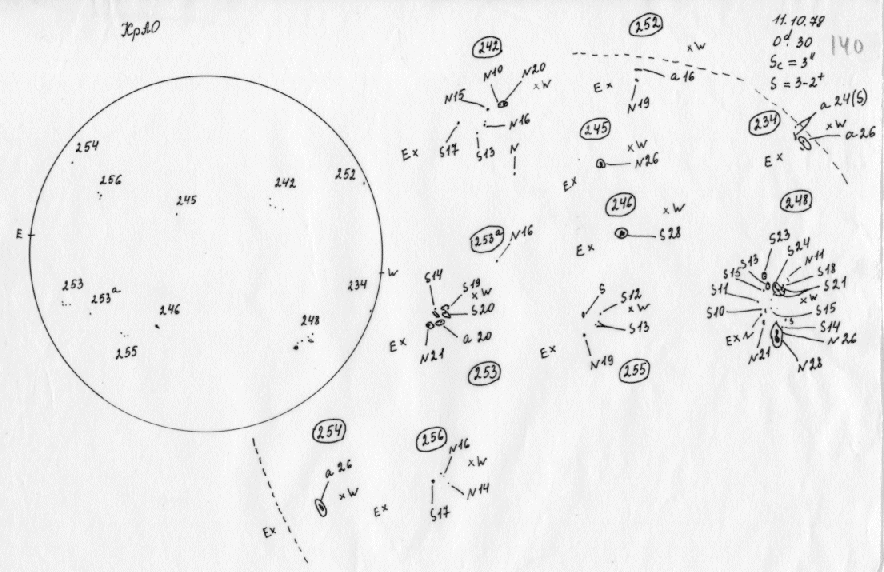 КрАО
11.10.79
0ᵈ.30
Sc = 3"
S = 3-2⁺
140
254
256
245
242
252
E
W
253
253ᵃ
246
234
248
255
242
N10
N20
xW
N15
N16
Ex
S17
S13
N
252
xW
a16
Ex
N19
234
a24(S)
xW
a26
Ex
245
xW
N26
Ex
246
xW
S28
Ex
248
S23
S24
S13
N11
S15
S18
S11
S21
xW
S10
S15
S14
Ex
N
N21
N26
N28
253ᵃ
N16
S14
S19
xW
S20
a20
Ex
N21
253
S
S12
xW
S13
Ex
N19
255
254
a26
xW
Ex
256
N16
xW
N14
Ex
S17